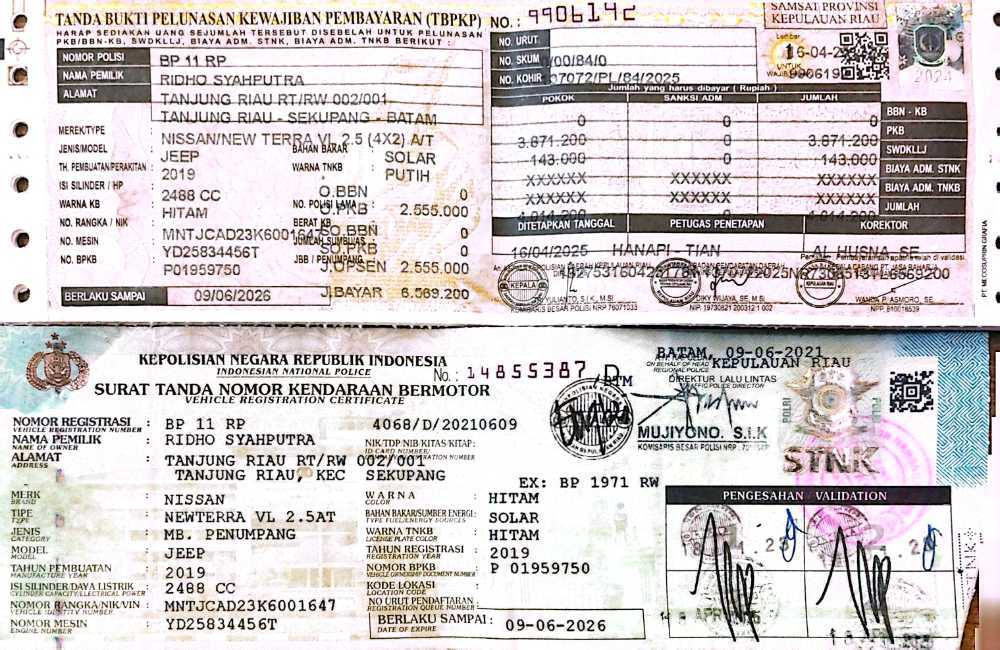 TANDA BUKTI PELUNASAN KEWAJIBAN PEMBAYARAN (TBPKP) NO.: 9906142
HARAP SEDIAKAN UANG SEJUMLAH TERSEBUT DISEBELAH UNTUK PELUNASAN
PKB/BBN-KB, SWDKLLJ, BIAYA ADM. STNK, BIAYA ADM. TNKB BERIKUT :
SAMSAT PROVINSI
KEPULAUAN RIAU
NOMOR POLISI BP 11 RP
NAMA PEMILIK RIDHO SYAHPUTRA
ALAMAT TANJUNG RIAU RT/RW 002/001
TANJUNG RIAU - SEKUPANG - BATAM
MEREK/TYPE NISSAN/NEW TERRA VL 2.5 (4X2) A/T
JENIS/MODEL JEEP
BAHAN BAKAR SOLAR
TH. PEMBUATAN/PERAKITAN : 2019
WARNA TNKB PUTIH
ISI SILINDER / HP : 2488 CC
WARNA KB : HITAM
NO. POLISI LAMA :
BERAT KB
NO. RANGKA / NIK : MNTJCAD23K6001647
NO. MESIN : YD25834456T
JBB / PENUMPANG
NO. BPKB : P01959750
BERLAKU SAMPAI : 09/06/2026
O.BBN 0
O.PKB 2.555.000
SO.BBN 0
SO.PKB 0
J.OPSEN 2.555.000
J.BAYAR 6.569.200
NO. URUT
NO. SKUM /00/84/0
NO. KOHIR 07072/PL/84/2025
Lembar
1
UNTUK
16-04-
990619
2024
Jumlah yang harus dibayar ( Rupiah )
POKOK SANKSI ADM JUMLAH
0 0 0 BBN - KB
3.871.200 0 3.871.200 PKB
143.000 0 143.000 SWDKLLJ
XXXXXX XXXXXX XXXXXX BIAYA ADM. STNK
XXXXXX XXXXXX XXXXXX BIAYA ADM. TNKB
4.014.200 0 4.014.200 JUMLAH
DITETAPKAN TANGGAL PETUGAS PENETAPAN KOREKTOR
16/04/2025 HANAPI - TIAN AL HUSNA, SE
KEPALA
KOMISARIS BESAR POLISI NRP 76071033
DIKY WIJAYA, SE, M.Si
NIP. 19730821 200312 1 002
WANDA P. ASMORO, SE
KEPOLISIAN NEGARA REPUBLIK INDONESIA
INDONESIAN NATIONAL POLICE
No.: 14855387 D
SURAT TANDA NOMOR KENDARAAN BERMOTOR
VEHICLE REGISTRATION CERTIFICATE
BATAM, 09-06-2021
KEPULAUAN RIAU
DIREKTUR LALU LINTAS
TRAFFIC POLICE DIRECTOR
MUJIYONO. S.I.K
POLRI
STNK
NOMOR REGISTRASI : BP 11 RP 4068/D/20210609
VEHICLE REGISTRATION NUMBER
NAMA PEMILIK : RIDHO SYAHPUTRA
NAME OF OWNER
NIK/TDP/NIB/KITAS/KITAP:
ALAMAT : TANJUNG RIAU RT/RW 002/001
ADDRESS
TANJUNG RIAU, KEC SEKUPANG
EX: BP 1971 RW
MERK : NISSAN
BRAND
TIPE : NEWTERRA VL 2.5AT
TYPE
JENIS : MB. PENUMPANG
CATEGORY
MODEL : JEEP
MODEL
TAHUN PEMBUATAN : 2019
MANUFACTURE YEAR
ISI SILINDER/DAYA LISTRIK : 2488 CC
CYLINDER CAPACITY/ELECTRICAL POWER
NOMOR RANGKA/NIK/VIN : MNTJCAD23K6001647
VEHICLE IDENTITY NUMBER
NOMOR MESIN : YD25834456T
ENGINE NUMBER
WARNA : HITAM
COLOR
BAHAN BAKAR/SUMBER ENERGI : SOLAR
TYPE FUEL/ENERGY SOURCES
WARNA TNKB : HITAM
LICENSE PLATE COLOR
TAHUN REGISTRASI : 2019
REGISTRATION YEAR
NOMOR BPKB : P 01959750
VEHICLE OWNERSHIP DOCUMENT NUMBER
KODE LOKASI :
LOCATION CODE
NO URUT PENDAFTARAN :
REGISTRATION QUEUE NUMBER
BERLAKU SAMPAI : 09-06-2026
DATE OF EXPIRE
PENGESAHAN VALIDATION